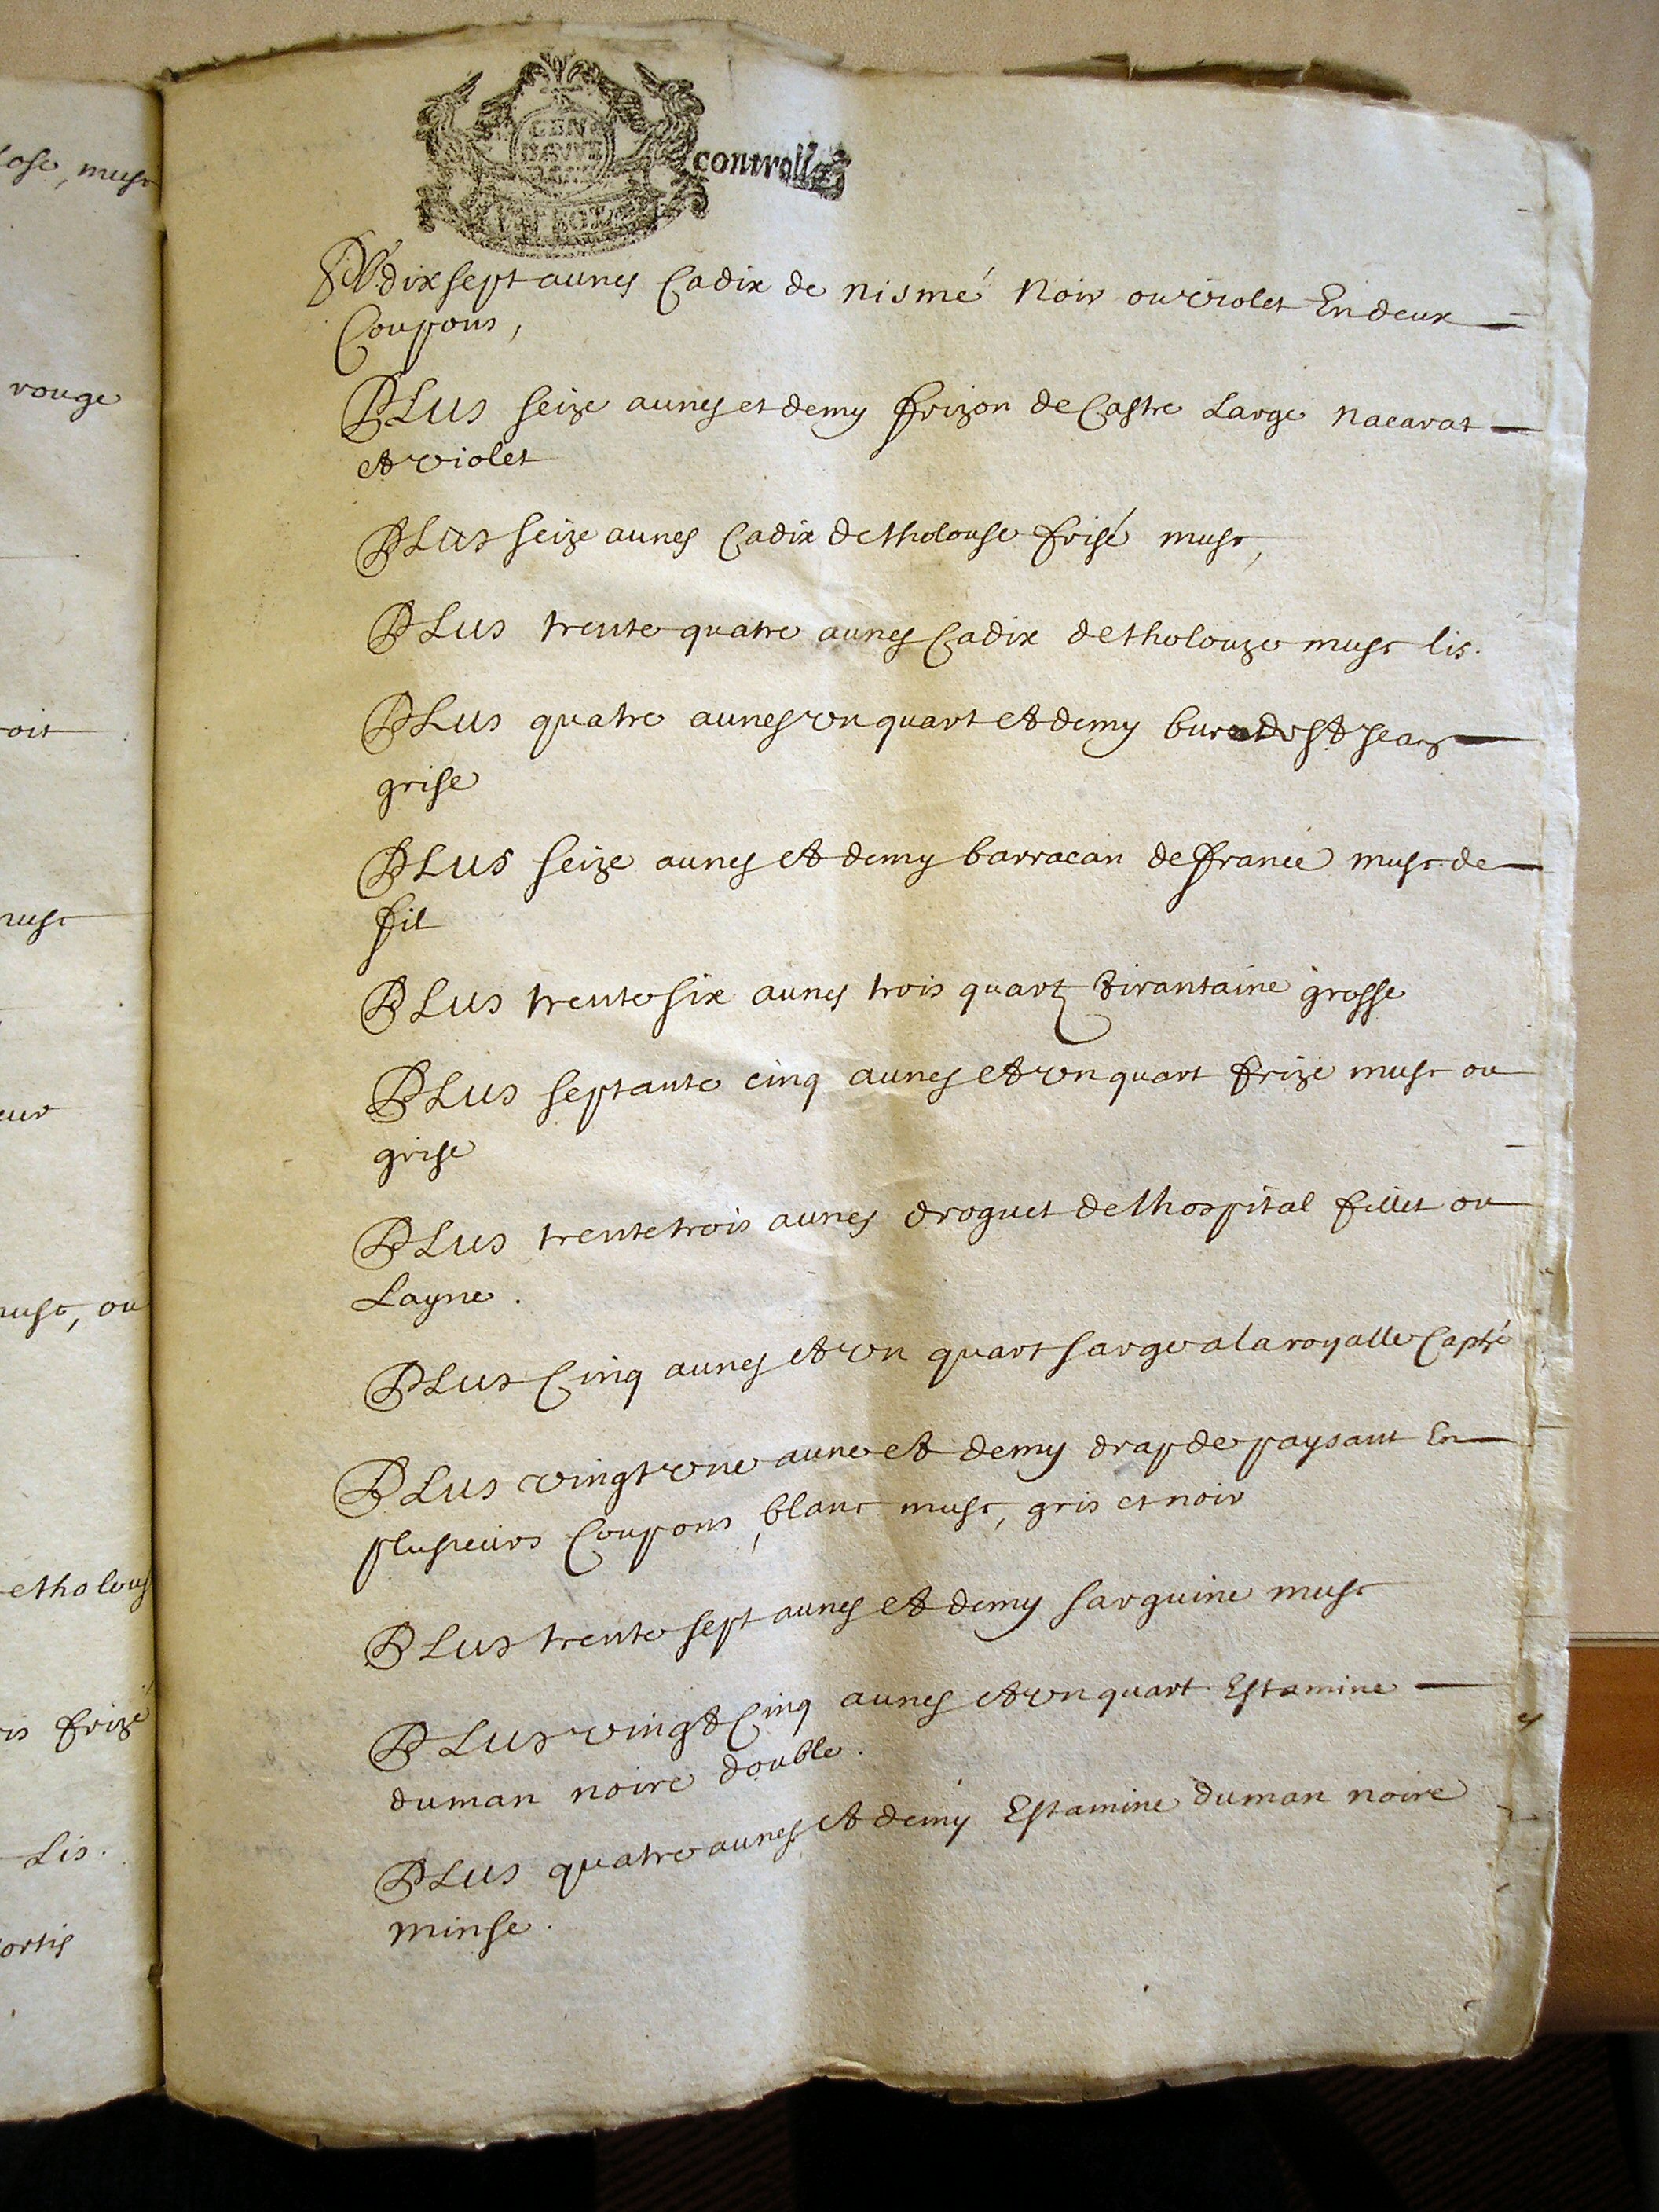 lose, musc
rouge
oit
musc
eur
musc, ou
etholous
is frizé
Lis.
ortis
GEN
controllé
dix sept aunes Cadix de nismé Noir ou violet En deux
Coupons,
PLus seize aunes et demy frizon de Castre Large nacarat
et violet
PLus seize aunes Cadix de tholouse frisé musc,
PLus trente quatre aunes Cadix de tholouze musc lis.
PLus quatre aunes un quart et demy burat de st jean
grise
PLus seize aunes et demy barracan de france musc de
fil
PLus trente six aunes trois quartz tirantaine grosse
PLus septante cinq aunes et un quart frize musc ou
grise
PLus trente trois aunes droguet de lhospital fillet ou
Layne.
PLus Cinq aunes et un quart sarge a la royalle
PLus vingt une aune et demy drap de paysant En
plusieurs Coupons, blanc musc, gris et noir
PLus trente sept aunes et demy sarguine musc
PLus vingt Cinq aunes et un quart Estamine
duman noire double.
PLus quatre aunes et demy Estamine duman noire
minse.